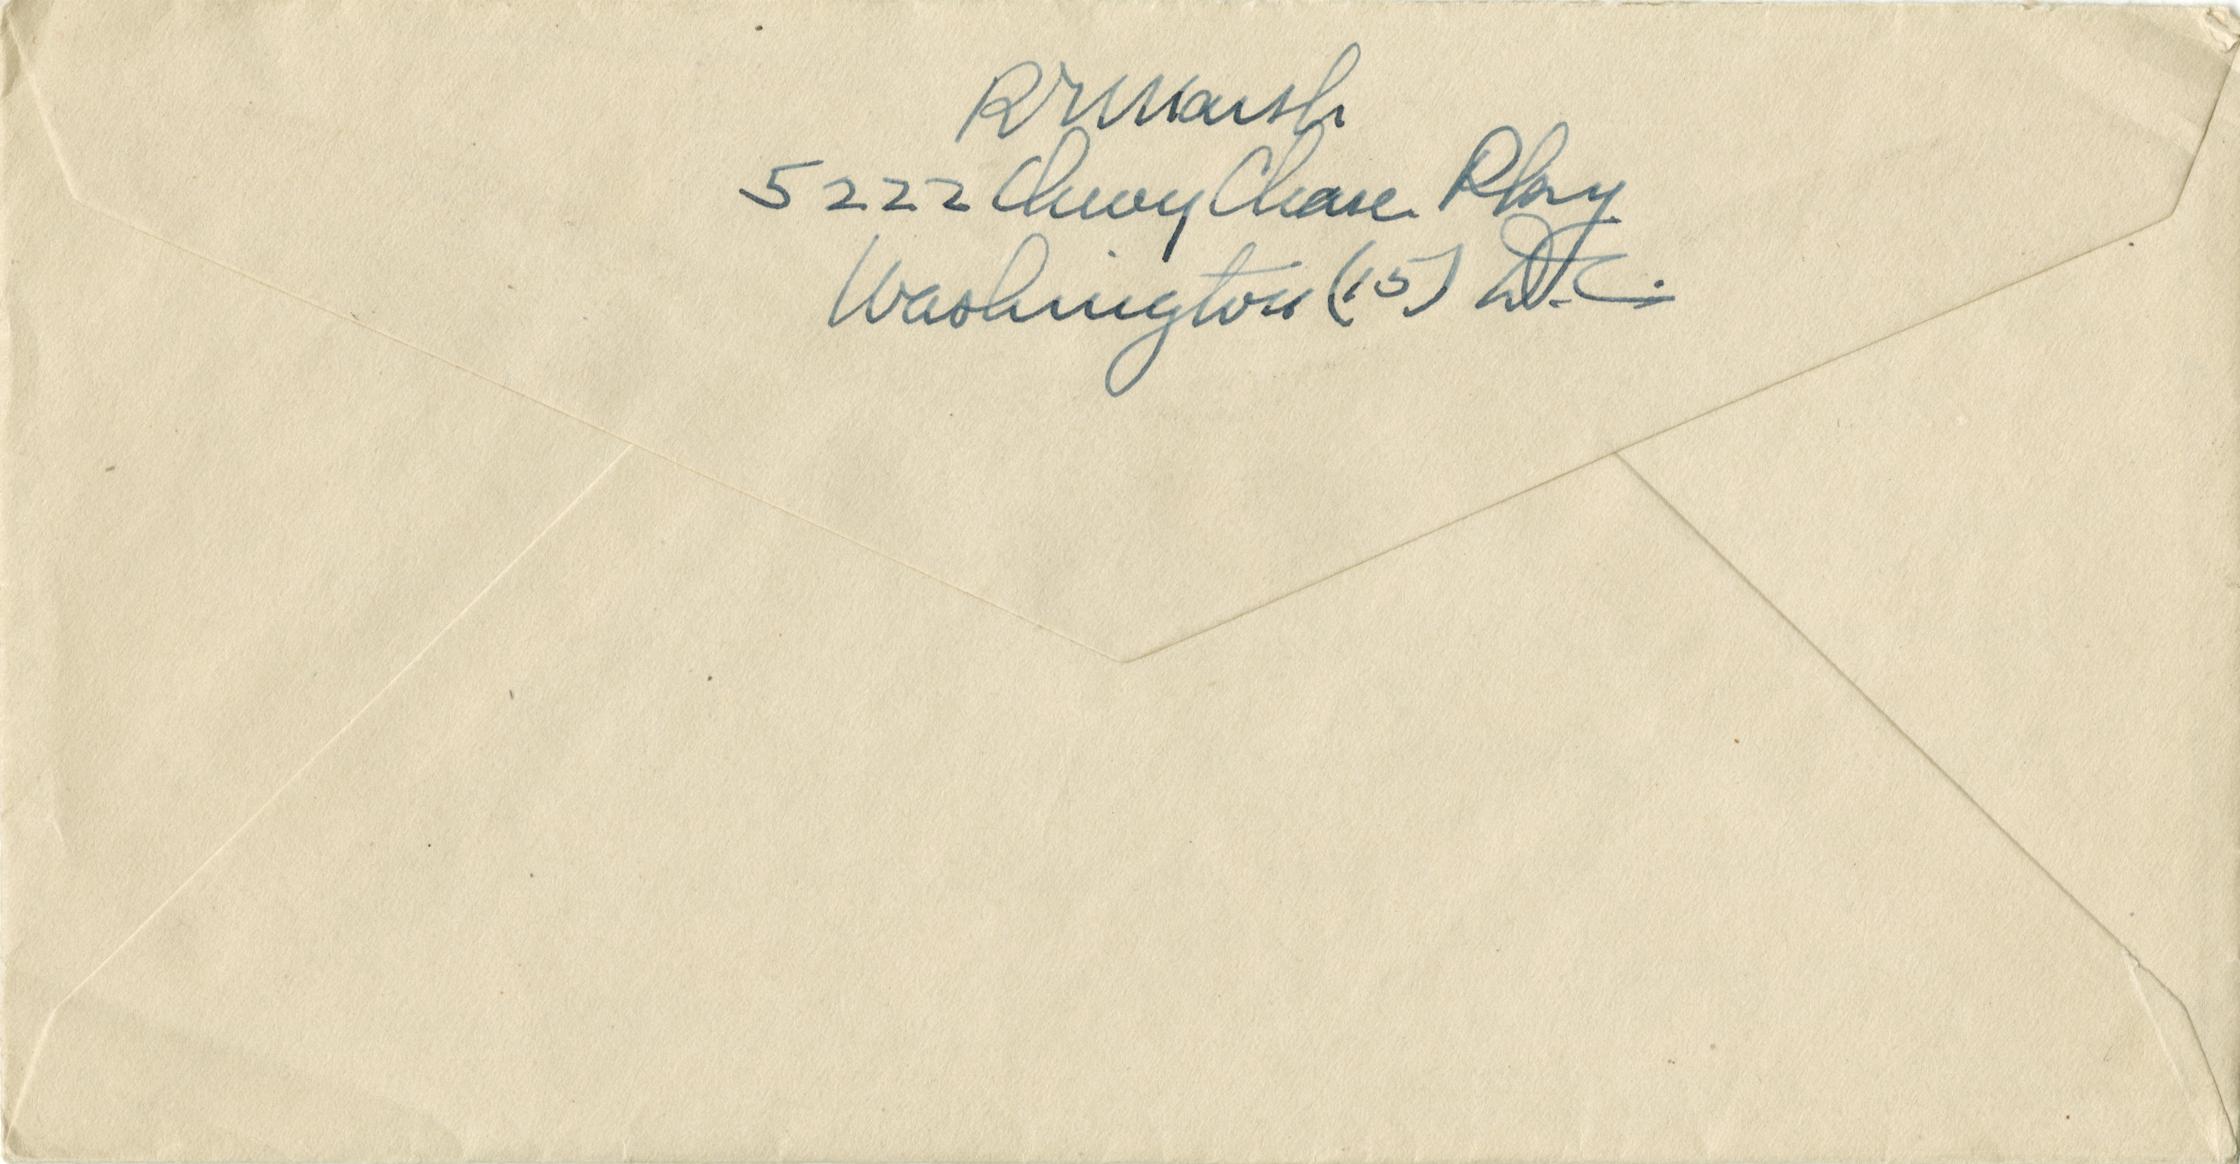 RR Marsh
5222 Chevy Chase Pkwy
Washington (15) D.C.